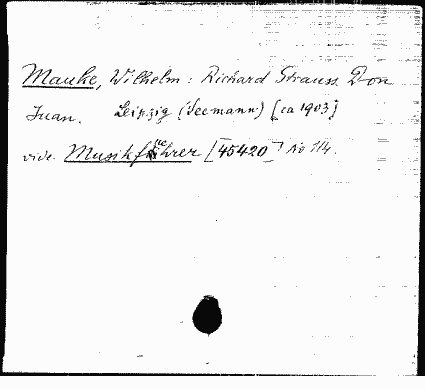 Mauke, Wilhelm: Richard Strauss. Don
Juan. Leipzig (Seemann) [ca 1903]
vide Musikführer [45420] No 114.